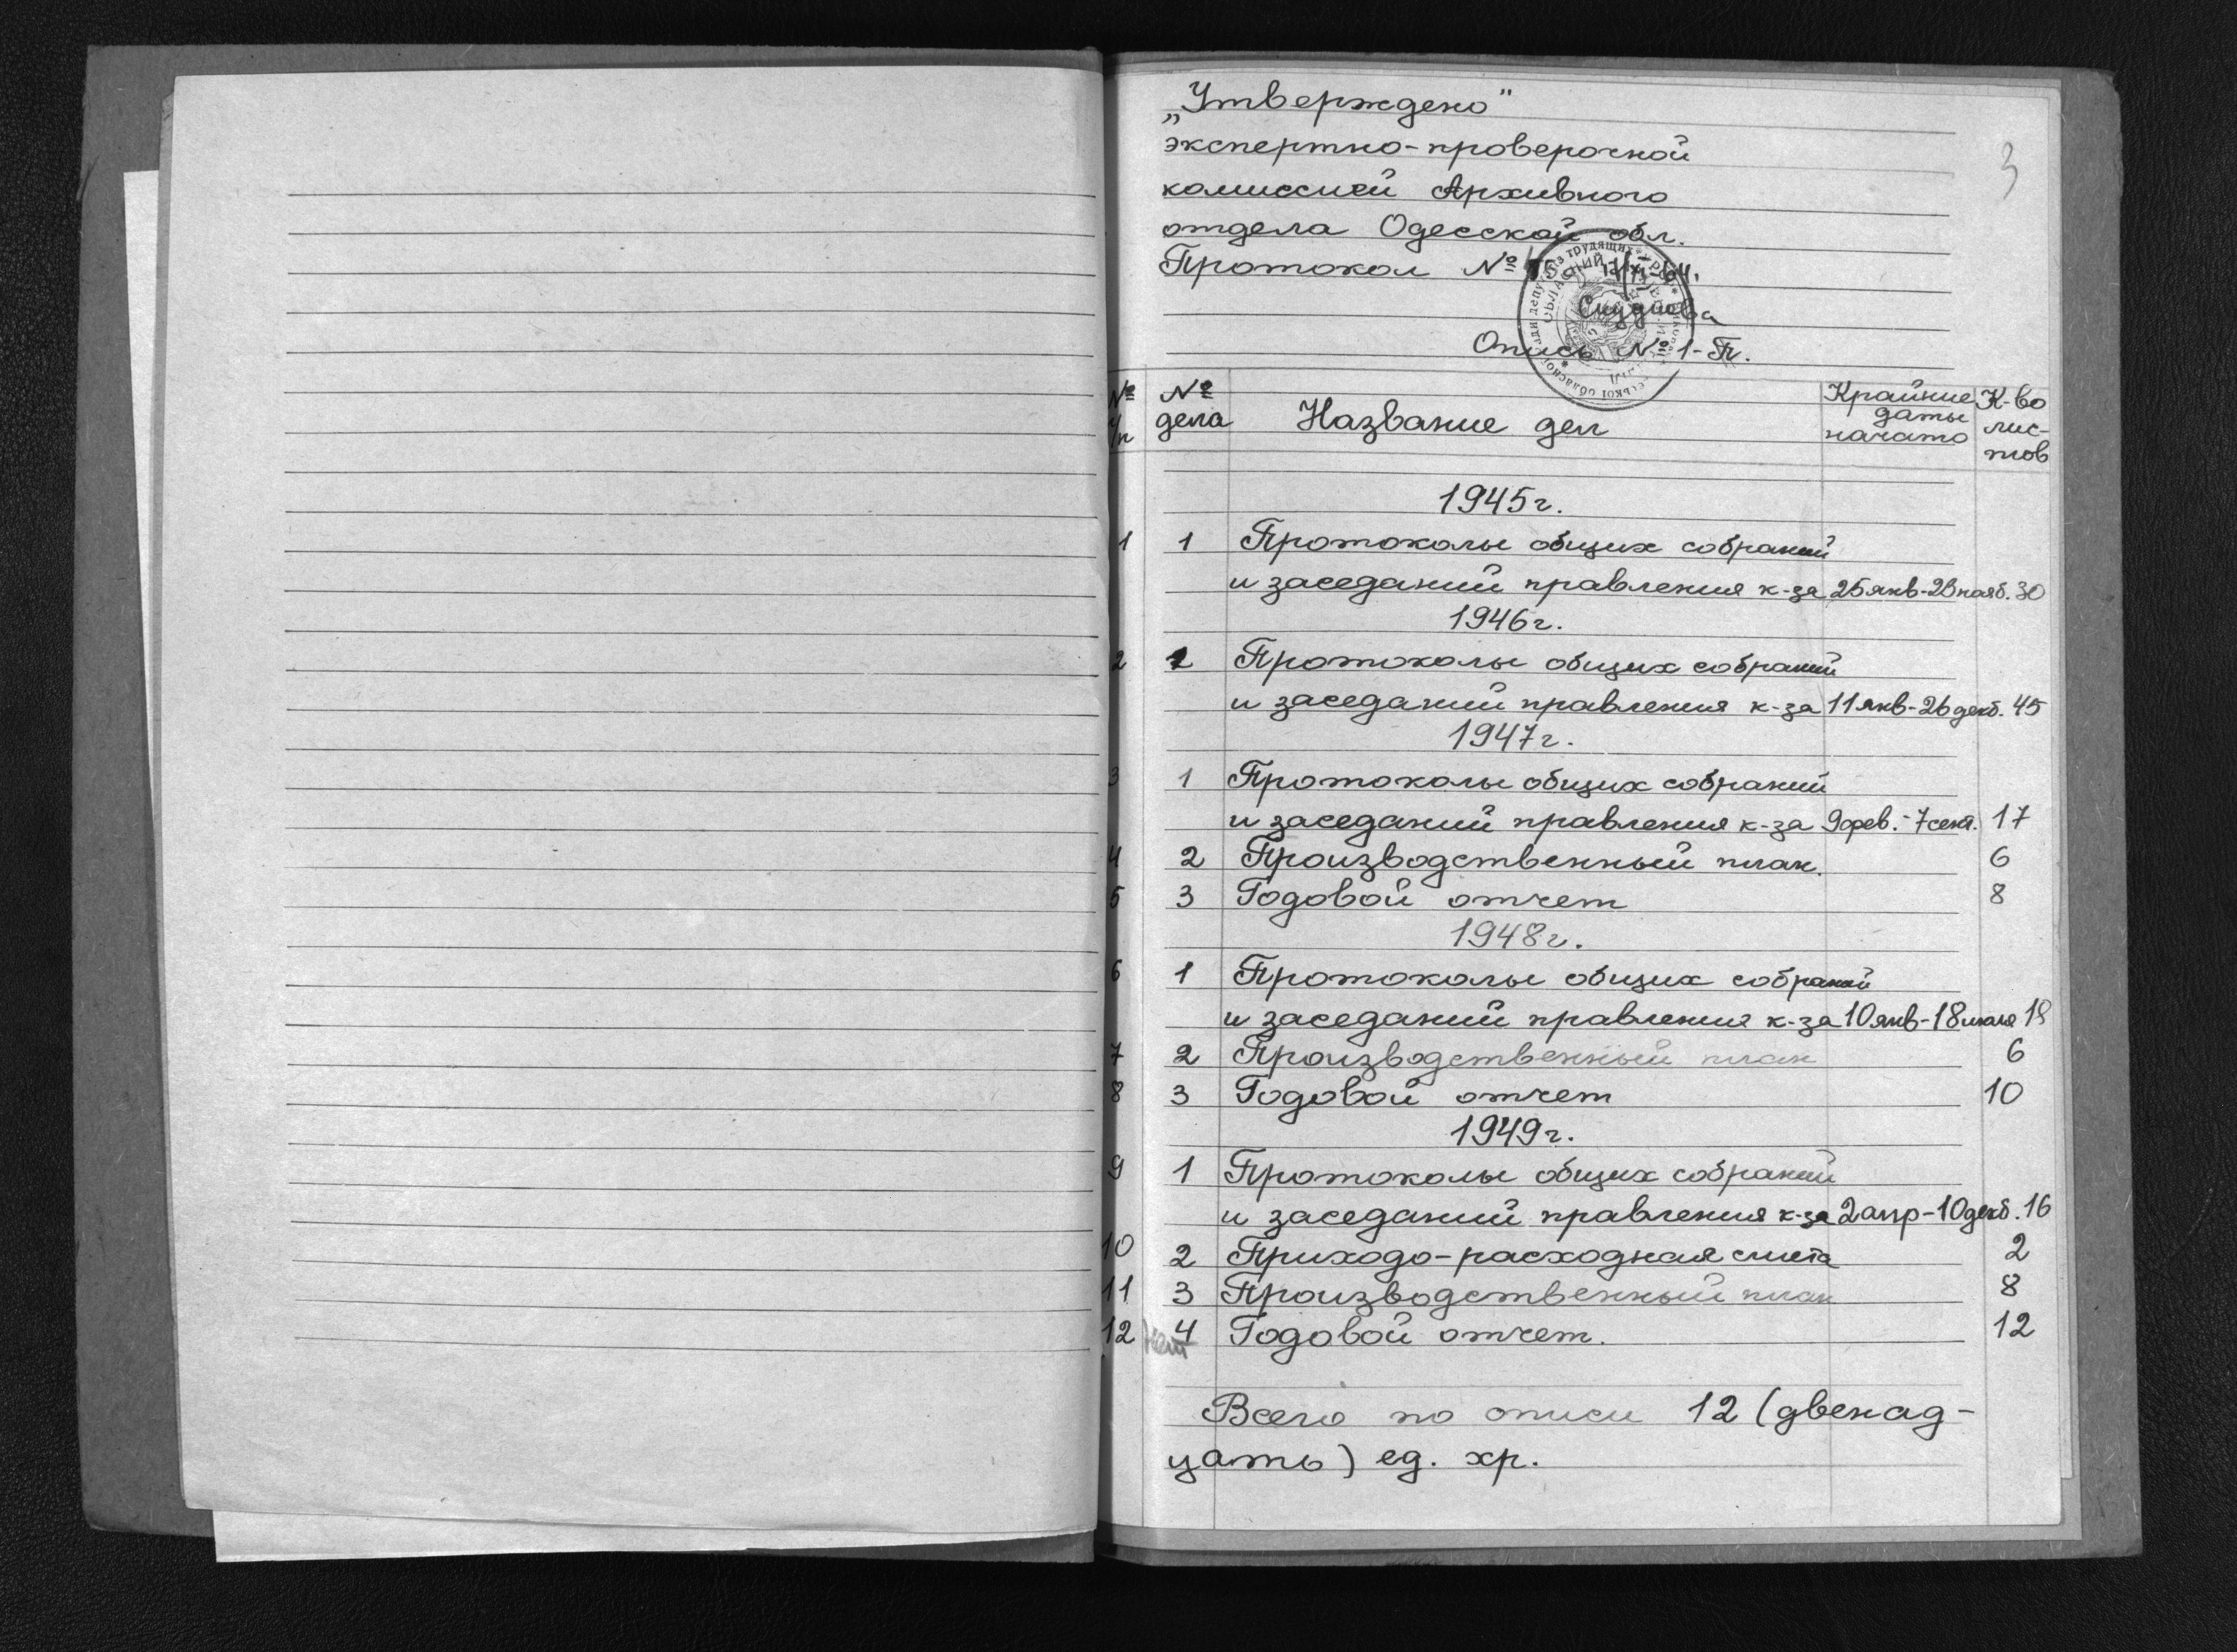 „Утверждено"
экспертно-проверочной
3
комиссией Архивного
отдела Одесской обл.
Протокол №
Опись № 1-П.
№ п/п № дела Название дел Крайние даты начато К-во лис-тов
1945г.
1 1 Протоколы общих собраний
и заседаний правления к-за 25 янв-23 нояб. 30
1946г.
2 1 Протоколы общих собраний
и заседаний правления к-за 11 янв-26 декб. 45
1947г.
3 1 Протоколы общих собраний
и заседаний правления к-за 9 фев.-7 сент. 17
4 2 Производственный план. 6
5 3 Годовой отчет 8
1948г.
6 1 Протоколы общих собраний
и заседаний правления к-за 10 янв-18 июля 18
7 2 Производственный план 6
8 3 Годовой отчет 10
1949г.
9 1 Протоколы общих собраний
и заседаний правления к-за 2 апр-10 декб. 16
10 2 Приходо-расходная смета 2
11 3 Производственный план 8
12 нет 4 Годовой отчет. 12
Всего по описи 12 (двенад-
цать) ед. хр.